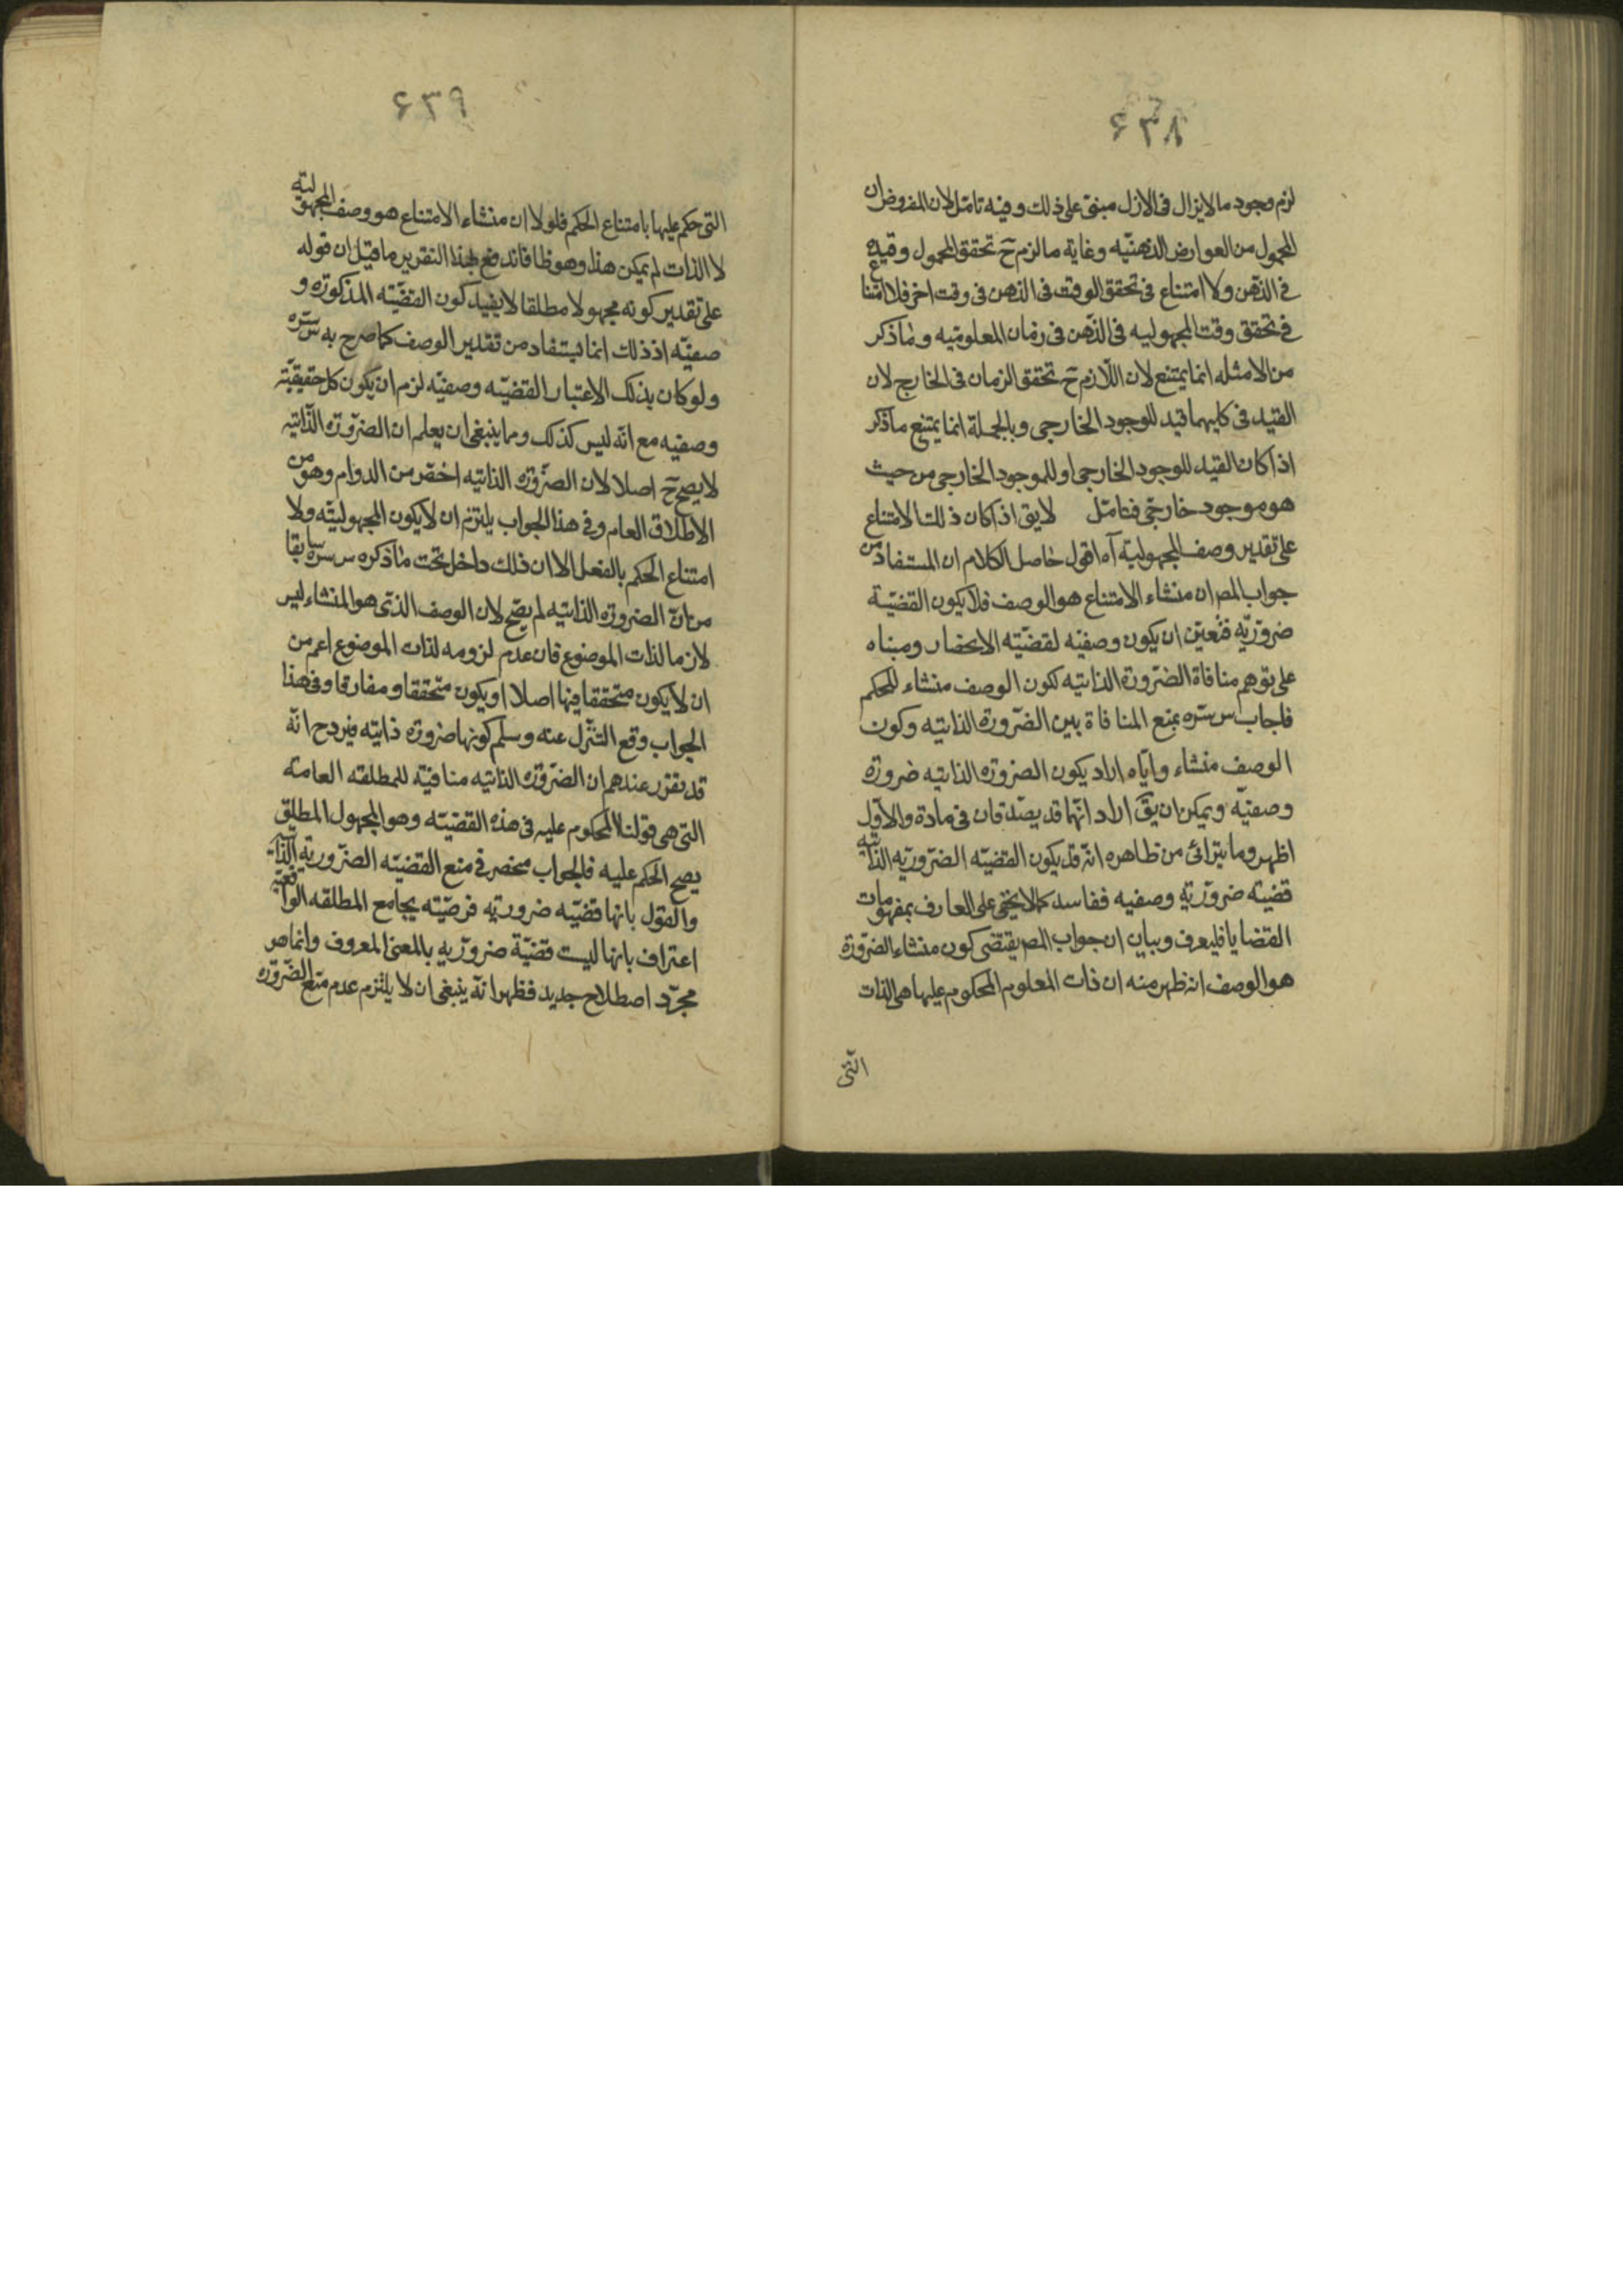 ٦٣٨
لزم وجود ما لا يزال فى الازل مبنى على ذلك وفيه تامّل لان المفروض ان
المجهول من العوارض الذهنيّه وغاية ما لزم ح تحقق المجهول وقيده
فى الذهن ولا امتناع فى تحقق الوقت فى الذهن فى وقت اخر فلا امتناع
فى تحقق وقت المجهوليه فى الذّهن فى زمان المعلوميّه وما ذكر
من الامثله انما يمتنع لان اللّازم ح تحقق الزمان فى الخارج لان
القيد فى كليهما قيد للوجود الخارجى وبالجملة انما يمتنع ما ذكر
اذا كان القيد للوجود الخارجى او للموجود الخارجى من حيث
هو موجود خارجى فتامّل لايق اذا كان ذلك الامتناع
على تقدير وصف المجهوليّة آه اقول حاصل الكلام ان المستفاد من
جواب المص ان منشاء الامتناع هو الوصف فلا يكون القضيّة
ضروريّه فتعيّن ان يكون وصفيّه لقضيّته الانحصار ومبناه
على توهم منافاة الضّرورة الذاتيه لكون الوصف منشاء للحكم
فاجاب س سرّه بمنع المنافاة بين الضّرورة الذاتيه وكون
الوصف منشاء وايّاه اراد يكون الضرورة الذاتيه ضرورة
وصفيّة ويمكن ان يقّ اراد انّهما قد يصدقان فى مادة والاوّل
اظهر وما يترائى من ظاهره انّه قد يكون القضيّه الضّروريّه الذاتيّه
قضيّه ضروريّة وصفيه ففاسد كما لا يخفى على العارف بمفهومات
القضايا فليعرف وبيان ان جواب المص يقتضى كون منشاء الضّرورة
هو الوصف انه ظهر منه ان ذات المعلوم المحكوم عليها هى الذات
الّتى
٦٣٩
التى حكم عليها بامتناع الحكم فلولا ان منشاء الامتناع هو وصف المجهوليّه
لا الذات لم يمكن هذا وهو ظ فاندفع بهذا التقرير ما قيل ان قوله
على تقدير كونه مجهولا مطلقا لا يفيد كون القضيّه المذكورة و
صفيّه اذ ذلك انما يستفاد من تقدير الوصف كما صرح به س سرّه
ولو كان بذلك الاعتبار القضيّه وصفيّه لزم ان يكون كل حقيقيّة
وصفيه مع انّه ليس كذلك ومما ينبغى ان يعلم ان الضّرورة الذّاتيّه
لا يصح ح اصلا لان الضّرورة الذاتيّه اخصّ من الدوام وهو من
الاطلاق العام وفى هذا الجواب يلتزم ان لا يكون المجهوليّة ولا
امتناع الحكم بالفعل الا ان ذلك داخل تحت ما ذكره س سره سابقا
من انّ الضرورة الذاتيه لم يصّح لان الوصف الذى هو المنشاء ليس
لازما لذات الموضوع فان عدم لزومه لذات الموضوع اعم من
ان لا يكون متحققا فيها اصلا او يكون متحققا ومفارقا وفى هذا
الجواب وقع التنزّل عنه وسلّم كونها ضرورة ذاتيّه فيرد ح انّه
قد تقرر عندهم ان الضّرورة الذاتيه منافيّة للمطلقه العامه
التى هى قولنا المحكوم عليه فى هذه القضيّه وهو المجهول المطلق
يصح الحكم عليه فالجواب منحصر فى منع القضيّه الضّروريّة الذّاتيّة
والقول بانها قضيّه ضروريّه فرضيّه يجامع المطلقه الواقعيّه
اعتراف بانها ليست قضيّة ضروريّه بالمعنى المعروف وانما هو
مجرّد اصطلاح جديد فظهر انّه ينبغى ان لا يلتزم عدم منع الضّرورة